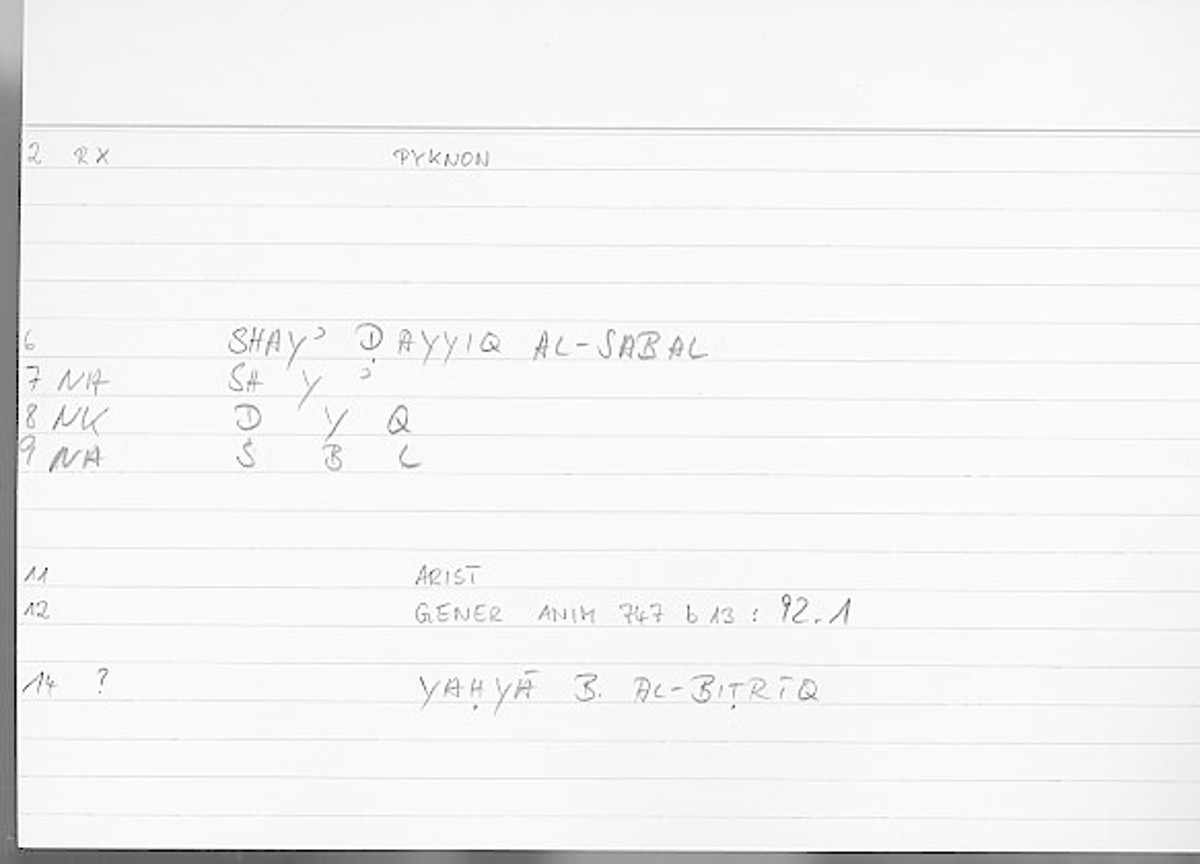 2 RX PYKNON
6 SHAYʾ ḌAYYIQ AL-SABAL
7 NA SH Y ʾ
8 NK D Y Q
9 NA S B L
11 ARIST
12 GENER ANIM 747 b 13 : 92.1
14 ? YAḤYĀ B. AL-BIṬRĪQ